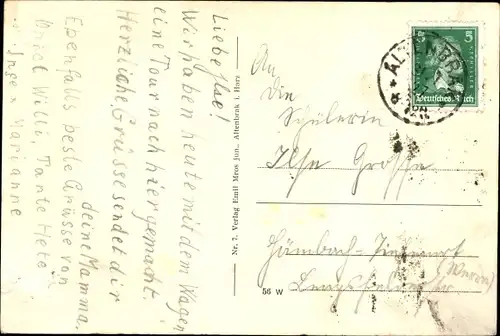 Liebe Ilse!
Wir haben heute mit dem Wagen
eine Tour nach hier gemacht.
Herzliche Grüsse sendet dir
deine Mamma.
Ebenfalls beste Grüsse von
Onkel Willi, Tante Hete
Marianne
Nr. 7. Verlag Emil Mros jun., Altenbrak i. Harz
56 W
5 5
Deutsches Reich
An
die
Schülerin
Ilse Grosse